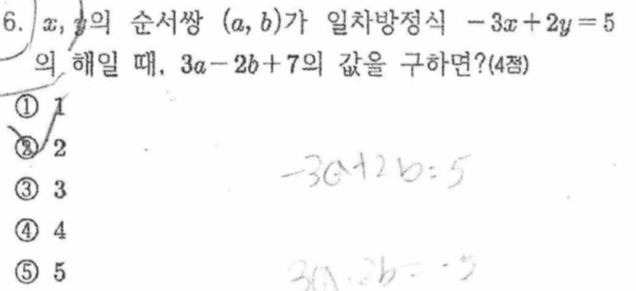 6. x, y의 순서쌍 (a, b)가 일차방정식 -3x+2y=5
의 해일 때, 3a-2b+7의 값을 구하면?(4점)
① 1
② 2
③ 3
④ 4
⑤ 5
-3a+2b=5
3a-2b=-5